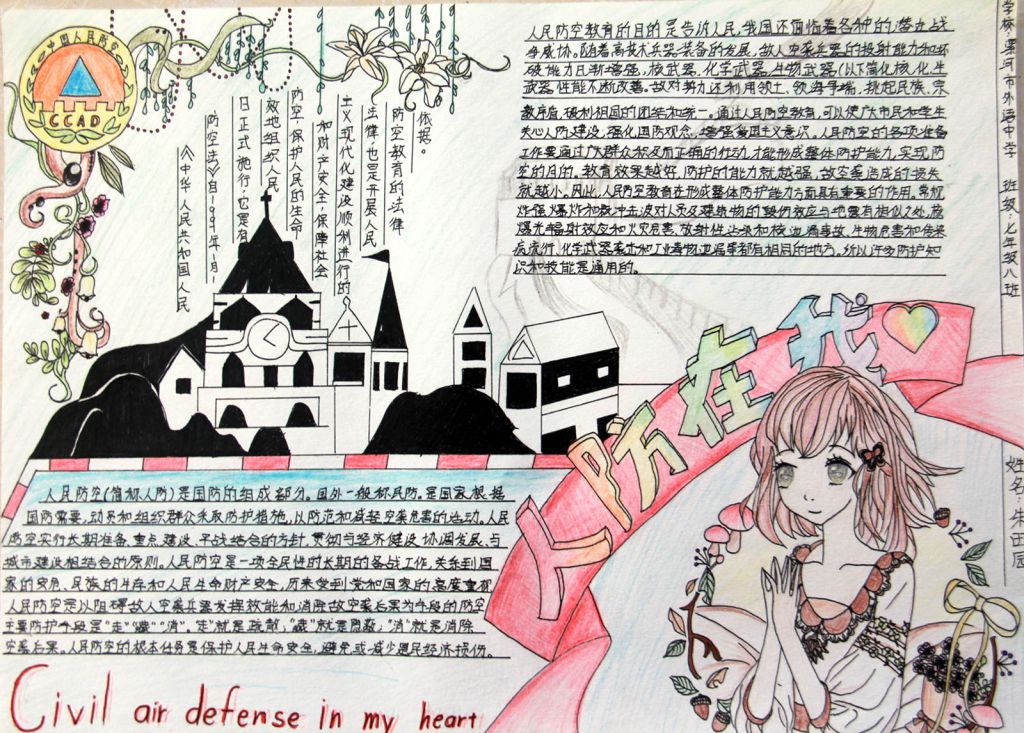 中国人民防空
CCAD
人民防空教育的目的是告诉人民,我国还面临着各种的潜在战
争威协。随着高技术兵器装备的发展,敌人空袭兵器的投射能力和破
破能力日渐增强,核武器、化学武器、生物武器(以下简化核、化、生
武器)性能不断改善。敌对势力还利用领土、领海争端,挑起民族、宗
教矛盾,破利祖国的团结和统一。通过人民防空教育,可以使广大市民和学生
关心人防建设,强化国防观念,增强爱国主义意识。人民防空的各项准备
工作要通过广大群众积极而正确的行动,才能形成整体防护能力,实现防
空的目的。教育效果越好,防护的能力就越强,敌空袭造成的损失
就越小。因此,人民防空教育在形成整体防护能力方面具有重要的作用。常规
炸弹爆炸和核冲击波对人员及建筑物的毁伤效应与地震有相似之处,核
爆光辐射效应和火灾危害,放射性沾染和核泄漏事故、生物危害和传染
病流行、化学武器袭击和工业毒物泄漏等都有相同的地方。所以许多防护知
识和技能是通用的。
学校:漯河市外语中学
班级:七年级八班
姓名:朱田园
依据。
防空教育的法律
法律,也是开展人民
主义现代化建设顺利进行的
和财产安全,保障社会
防空,保护人民的生命
效地组织人民
日正式施行,它是有
防空法》自1997年1月1
《中华人民共和国人民
人防在我
人民防空(简称人防)是国防的组成部分。国外一般称民防。是国家根据
国防需要,动员和组织群众采取防护措施,以防范和减轻空袭危害的活动。人民
防空实行长期准备、重点建设、平战结合的方针,贯彻与经济建设协调发展、与
城市建设相结合的原则。人民防空是一项全民性的长期的备战工作,关系到国
家的安危、民族的生存和人民生命财产安全,历来受到党和国家的高度重视。
人民防空是以阻碍敌人空袭兵器发挥效能和消除敌空袭后果为手段的防空,
主要防护手段是"走""藏""消"。"走"就是疏散;"藏"就是隐蔽;"消"就是消除
空袭后果。人民防空的根本任务是保护人民生命安全,避免或减少国民经济损伤。
Civil air defense in my heart